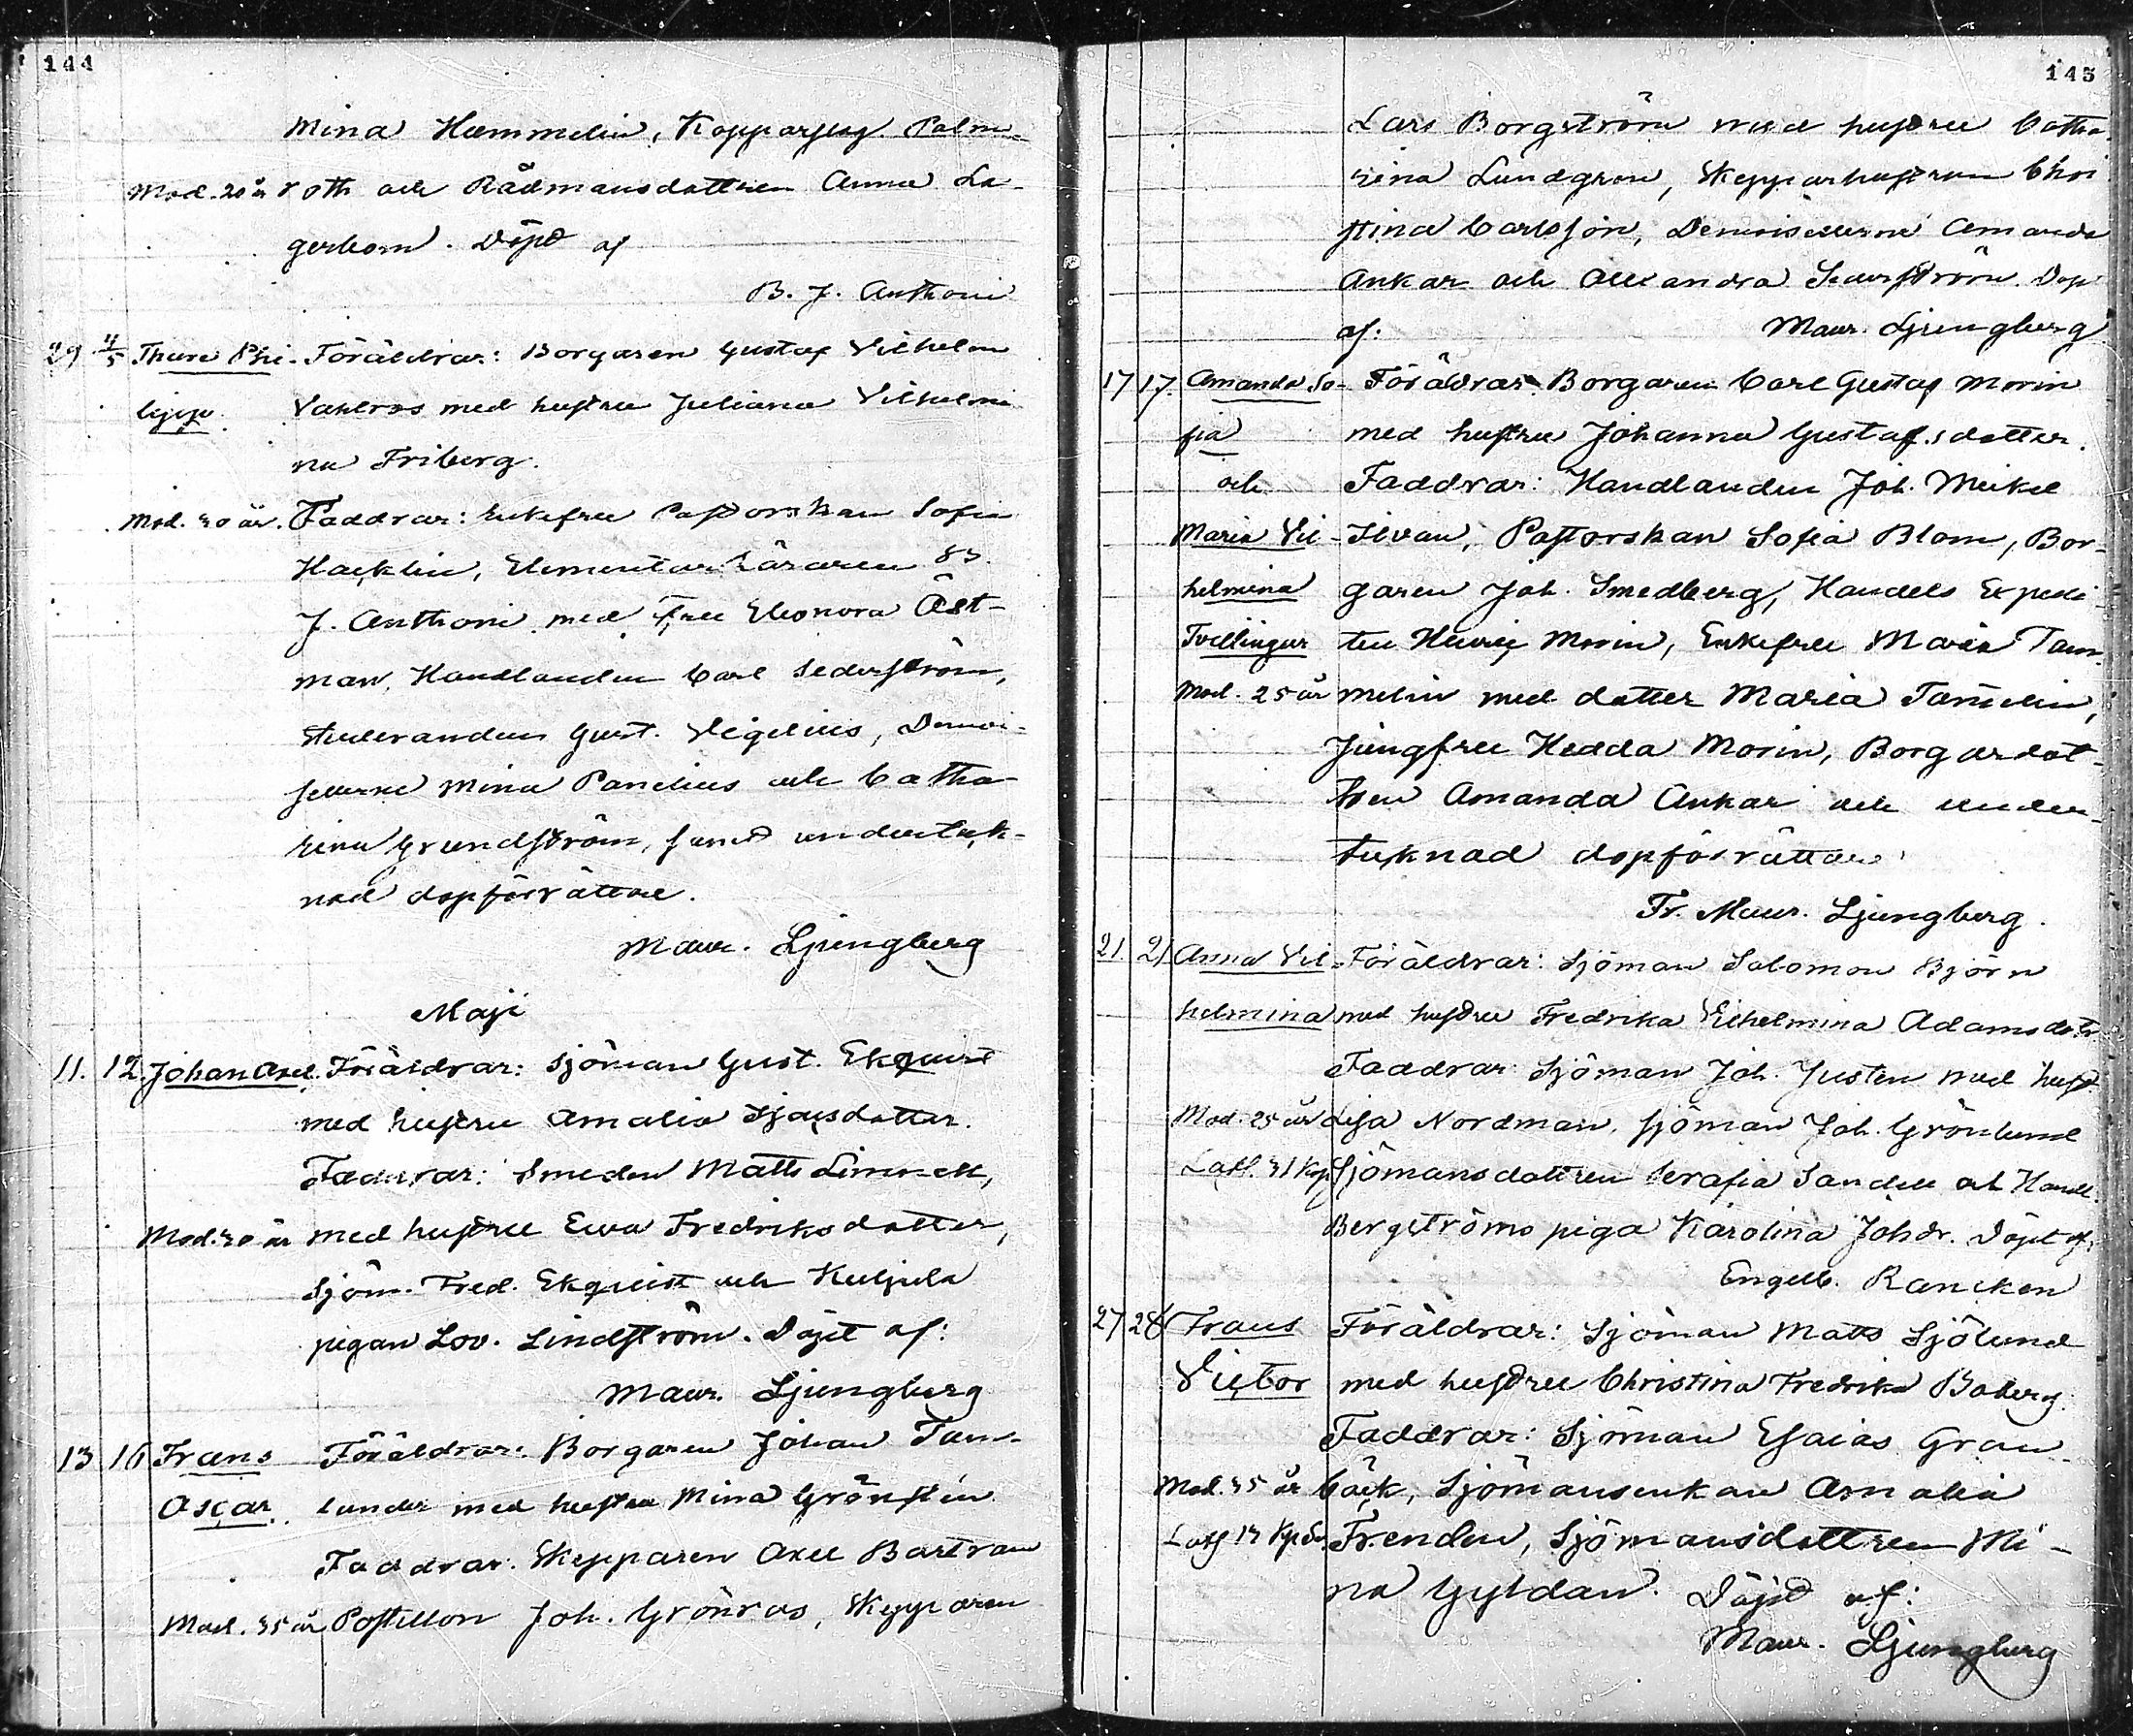 144
Mina Hammelin, Kopparslag. Palm-
Mod. 20 år roth och Rådmansdottren Anna La-
gerbom. Döpt af
B. J. Anthoni
29 4/5 Thure Phi- Föräldrar: Borgaren Gustaf Vilhelm
lipp. Vahlros med hustru Juliana Vilhelmi
na Friberg.
Mod. 30 år. Faddrar: Enkefru Pastorskan Sofia
Hacklin, Elementar Läraren B.
J. Anthoni med Fru Eleonora Åst-
man, Handlanden Carl Sederström,
Studeranden Gust. Vigelius, Demoi-
sellerne Mina Panelius och Catha-
rina Grundström, samt underteck-
nad dopförrättare.
Maur. Ljungberg
Maji
11. 12. Johan Axel. Föräldrar: Sjöman Gust. Ekquist
med hustru Amalia Isacsdotter.
Faddrar: Smeden Matts Limnell,
Mod. 30 år med hustru Ewa Fredriksdotter,
Sjöm. Fred. Ekquist och Kuljula
pigan Lov. Lindström. Döpt af:
Maur. Ljungberg
13 16 Frans Föräldrar: Borgaren Johan Tam-
Oscar. lander med hustru Mina Grönstén
Faddrar: Skepparen Axel Bartram
Mod. 35 år Postillon Joh. Grönros, Skepparen
145
Lars Borgström med hustru Catha
rina Lundgren, Skepparhustrun Chri
stina Carlsson, Demoisellerne Amanda
Ankar och Alexandra Sederström. Döpt
af: Maur. Ljungberg
17 17. Amanda So- Föräldrar: Borgaren Carl Gustaf Morin
fia med hustru Johanna Gustafsdotter.
och Faddrar: Handlanden Joh. Mickel
Maria Vil- Ilvan, Pastorskan Sofia Blom, Bor-
helmina garen Joh. Smedberg, Handels Expedi-
Tvillingar ten Henric Morin, Enkefru Maria Tam-
Mod. 25 år melin med dotter Maria Tamelin,
Jungfru Hedda Morin, Borgardot-
tren Amanda Ankar och under-
tecknad dopförrättare.
Fr. Maur. Ljungberg.
21. 21 Anna Vil- Föräldrar: Sjöman Salomon Björn
helmina med hustru Fredrika Vilhelmina Adamsdotr
Faddrar: Sjöman Joh. Justen med hust.
Mod. 25 år Lisa Nordman, sjöman Joh. Grönlund
Sjömansdottren Serafia Sandell och Handl.
Bergströms piga Karolina Johdr. Döpt af:
Engelb. Rancken
27 28 Frans Föräldrar: Sjöman Matts Sjölund
Victor med hustru Christina Fredrika Boberg.
Faddrar: Sjöman Esaias Gran-
Mod. 35 år bäck, Sjömansenkan Amalia
Frendén, Sjömansdottren Mi-
na Gyldan. Döpt af:
Maur. Ljungberg